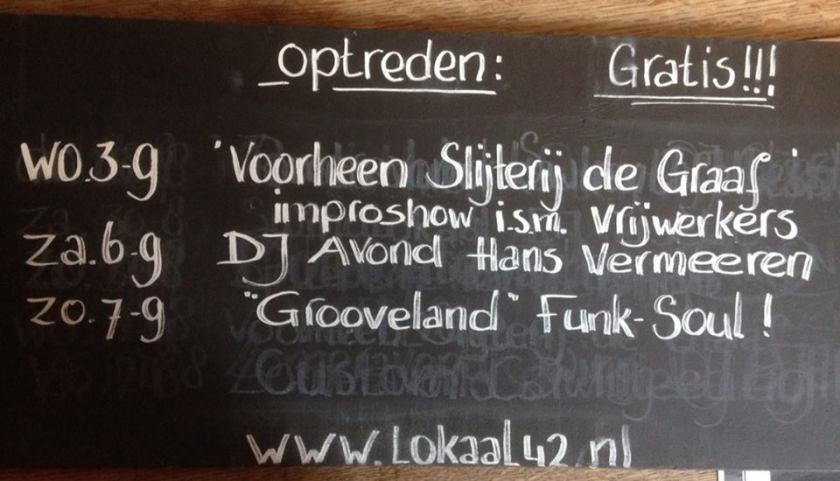 optreden: Gratis!!!
WO.3-9 'Voorheen Slijterij de Graaf'
improshow i.s.m. Vrijwerkers
Za.6-9 DJ Avond Hans Vermeeren
ZO.7-9 "Grooveland" Funk-Soul!
www.Lokaal42.nl